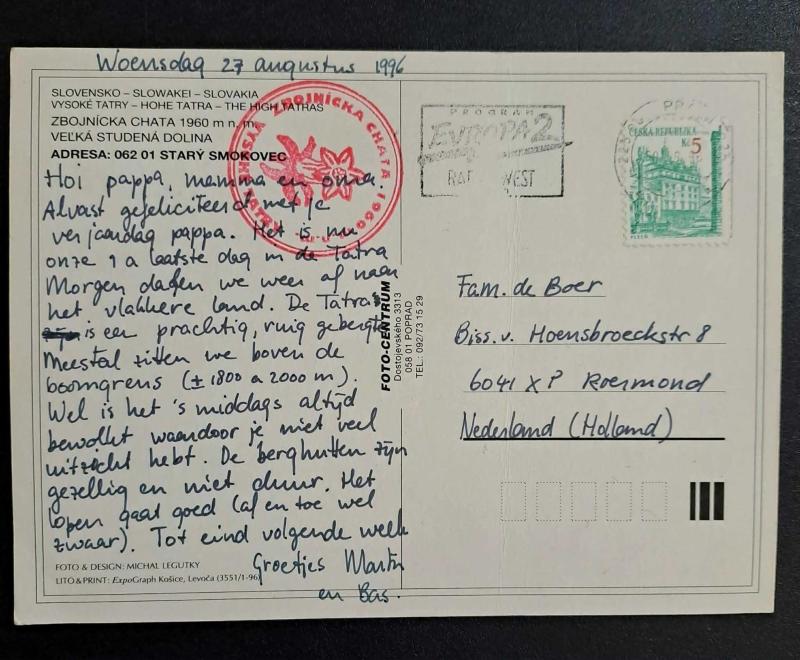 Woensdag 27 augustus 1996
SLOVENSKO – SLOWAKEI – SLOVAKIA
VYSOKÉ TATRY – HOHE TATRA – THE HIGH TATRAS
ZBOJNÍCKA CHATA 1960 m n. m.
VEĽKÁ STUDENÁ DOLINA
ADRESA: 062 01 STARÝ SMOKOVEC
ZBOJNÍCKA CHATA 1960
TATRY
Hoi pappa, mamma en oma.
Alvast gefeliciteerd met je
verjaardag pappa. Het is nu
onze 1 a laatste dag in de Tatra
Morgen dalen we weer af naar
het vlakkere land. De Tatra
is een prachtig, ruig gebergte
Meestal zitten we boven de
boomgrens (± 1800 a 2000 m).
Wel is het 's middags altijd
bewolkt waardoor je niet veel
uitzicht hebt. De berghutten zijn
gezellig en niet duur. Het
lopen gaat goed (af en toe wel
zwaar). Tot eind volgende week
Groetjes Martin
en Bas.
FOTO & DESIGN: MICHAL LEGUTKY
LITO & PRINT: ExpoGraph Košice, Levoča (3551/1-96)
FOTO-CENTRUM
Dostojevského 3313
058 01 POPRAD
TEL.: 092/73 15 29
PROGRAM
EVROPA 2
WEST
ČESKÁ REPUBLIKA
Kč 5
PLZEŇ
Fam. de Boer
Biss. v. Hoensbroeckstr 8
6041 XP Roermond
Nederland (Holland)